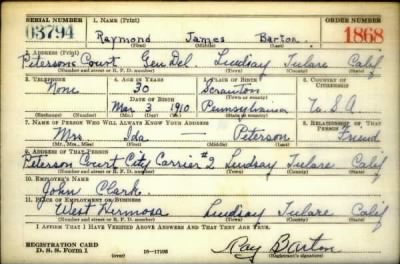 SERIAL NUMBER 1. NAME (Print) ORDER NUMBER
03794 Raymond James Barton. 1868
(First) (Middle) (Last)
2. ADDRESS (Print)
Peterson Court Gen Del. Lindsay Tulare Calif
(Number and street or R. F. D. number) (Town) (County) (State)
3. TELEPHONE 4. AGE IN YEARS 5. PLACE OF BIRTH 6. COUNTRY OF CITIZENSHIP
None 30 Scranton
DATE OF BIRTH (Town or county)
Mar 3 1910 Pennsylvania U. S. A
(Exchange) (Number) (Mo.) (Day) (Yr.) (State or country)
7. NAME OF PERSON WHO WILL ALWAYS KNOW YOUR ADDRESS 8. RELATIONSHIP OF THAT PERSON
Mrs Ida — Peterson Friend
(Mr., Mrs., Miss) (First) (Middle) (Last)
9. ADDRESS OF THAT PERSON
Peterson Court City Carrier #2 Lindsay Tulare Calif
(Number and street or R. F. D. number) (Town) (County) (State)
10. EMPLOYER'S NAME
John Clark.
11. PLACE OF EMPLOYMENT OR BUSINESS
West Hermosa Lindsay Tulare Calif
(Number and street or R. F. D. number) (Town) (County) (State)
I AFFIRM THAT I HAVE VERIFIED ABOVE ANSWERS AND THAT THEY ARE TRUE.
REGISTRATION CARD
D. S. S. Form 1 (over) 16—17105 Ray Barton
(Registrant's signature)